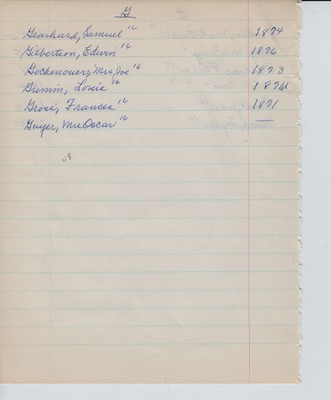 G
Gearhard, Samuel "16 1874
Gilbertson, Edwin "16 1876
Gochenower, Mrs Joe "16 1873
Grimin, "16 187
Grose, Frances "16 1871
Guyer, Mrs Oscar "16 —